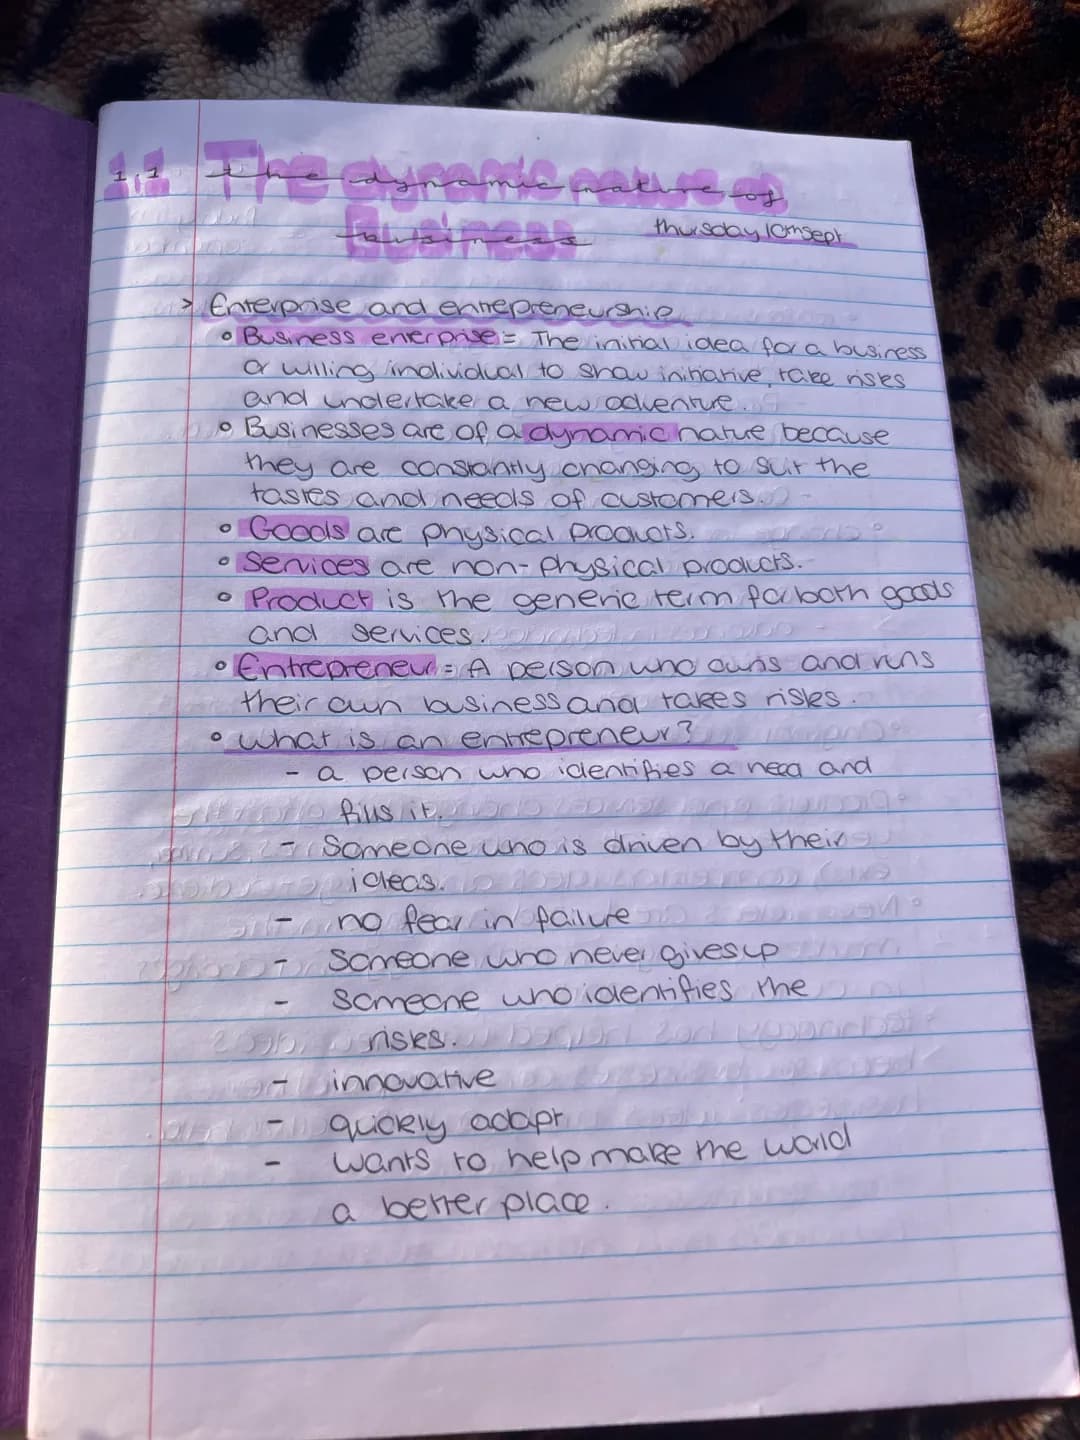 1.1 The dynamic nature of
Business
Thursday 10th Sept
> Enterprise and entrepreneurship
• Business enterprise = The initial idea for a business
or willing individual to show initiative, take risks
and undertake a new adventure.
• Businesses are of a dynamic nature because
they are constantly changing to suit the
tastes and needs of customers.
• Goods are physical products.
• Services are non-physical products.
• Product is the generic term for both goods
and services.
• Entrepreneur = A person who owns and runs
their own business and takes risks.
• what is an entrepreneur?
- a person who identifies a need and
fills it.
- Someone who is driven by their
ideas.
- no fear in failure
- Someone who never gives up
- Someone who identifies the
risks.
- innovative
- quickly adapt
- wants to help make the world
a better place.